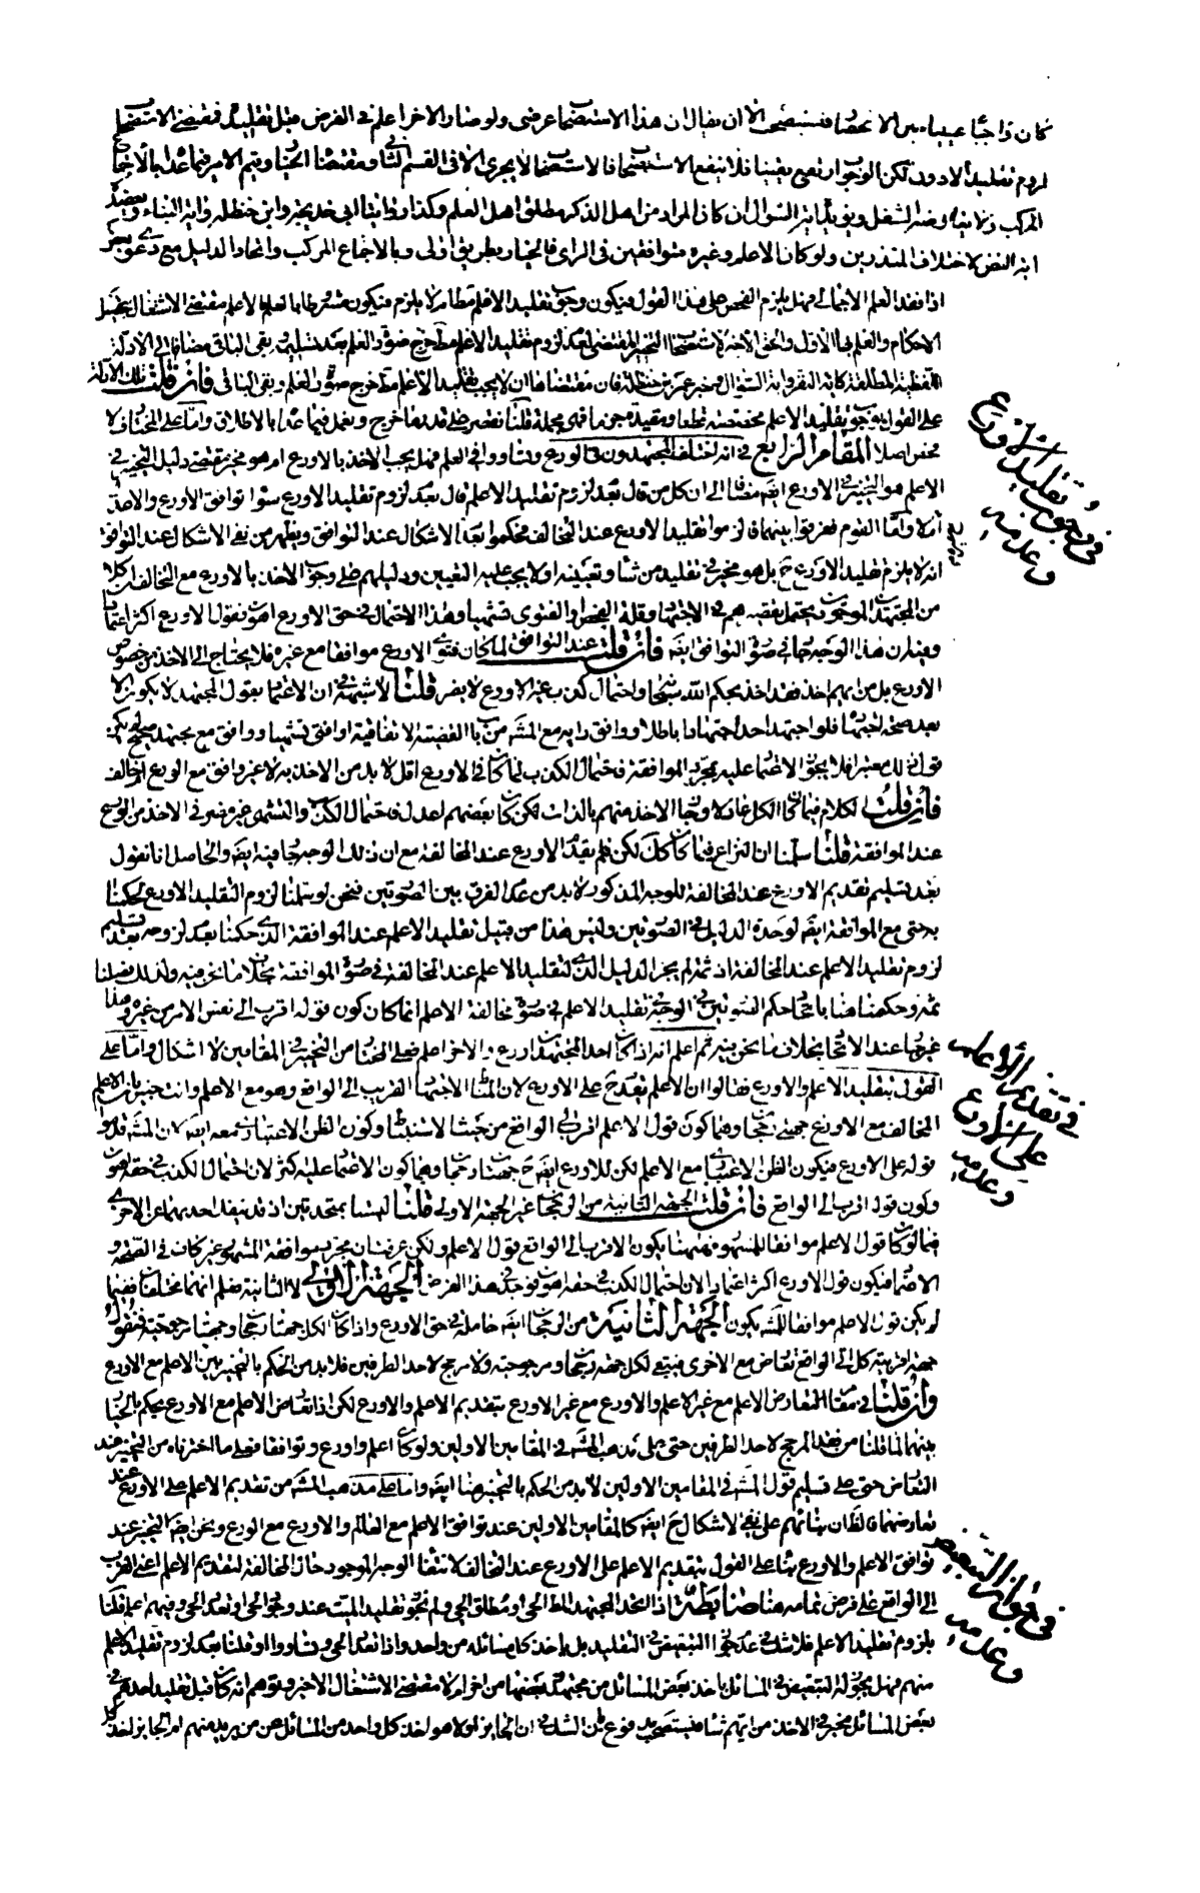 كان واجبا عينيا من الا فيستصحى الا ان يقال ان هذا الاستصحاب عرضى ولو صار الاخر اعلم فى الفرض قبل تقليده فمقتضى الاستصحاب
لزوم تقليد الادون لكن الوجوب ارتفع يقينا فلا ينفع الاستصحاب فالاستصحاب لا يجرى الا فى القسم الثانى ومقتضاه ويتم الامر فيما عداه بالاجماع
المركب ويؤيد اية السؤال ان كان المراد من اهل الذكر مطلق اهل العلم وكذا روايتا ابى خديجة وابن حنظلة واية
اية النفر لاختلاف المنذرين ولو كان الاعلم وغيره متوافقين فى الراى فالخيار بطريق اولى وبالاجماع المركب واتحاد الدليل مع
اذا فقد العلم الاجمالى فهل يلزم الفحص على هذا القول فيكون وجوب تقليد الاعلم مطلقا ام لا يلزم فيكون مشروطا بالعلم بالاعلم مقتضى الاشتغال
الاحكام والعلم بها الاول التخيير المقتضى لعدم لزوم تقليد الاعلم خرج صورة العلم وبقى الباقى مضافا الى الادلة
اللفظية المطلقة كاية النفر واية السؤال وخبر عمر بن حنظلة فان مقتضاها ان لا يجب تقليد الاعلم خرج صورة العلم وبقى الباقى فان قلت تلك الادلة
على القول بوجوب تقليد الاعلم مخصصة قطعا ومقيدة جزما فهى مجملة قلنا نقتصر على قدر ما خرج ونعمل فيما عداه بالاطلاق واما على المختار فلا
مخصص اصلا المقام الرابع فى انه لو اختلف المجتهدون فى الورع وتساووا فى العلم فهل يجب الاخذ بالاورع ام هو مخير مقتضى دليل التخيير فى
الاعلم هو التخيير فى الاورع ايضا مضافا الى ان كل من قال بعدم لزوم تقليد الاعلم قال بعدم لزوم تقليد الاورع سواء توافق الاورع والاعلم
ام لا واما القوم ففرقوا بينهما فالزموا تقليد الاورع عند التخالف فحكموا بعد الاشكال عند التوافق ويظهر من نفى الاشكال عند التوافق
انه لا يلزم تقليد الاورع ح بل هو مخير فى تقليد من شاء وتعيينه او لا يجب عليه التعيين ودليلهم على وجوب الاخذ بالاورع مع التخالف ان كلا
من المجتهدين الموجودين يحتمل تقصيرهم فى الاجتهاد وقلة الفحص او الفتوى تشهيا وهذا الاحتمال فى حق الاورع اهون فقول الاورع اكثر اعتمادا
وفيه ان هذا الوجه جار فى صورة التوافق ايضا فان قلت عند التوافق لما كان فتوى الاورع موافقا مع غيره فلا يحتاج الى الاخذ من خصوص
الاورع بل من ايهم اخذ فقد اخذ بحكم الله واحتمال كذب غير الاورع لا يضر قلنا لا شبهة فى ان الاعتماد بقول المجتهد لا يكون الا
بعد صحة اجتهاده فلو اجتهد احد اجتهادا باطلا ووافق رايه مع المش من باب القضية الاتفاقية او افتى تشهيا ووافق مع مجتهد صحيح لم يكن
قوله معتبرا فلا يجوز الاعتماد عليه بمجرد الموافقة فاحتمال الكذب لما كان فى الاورع اقل لا بد من الاخذ به لا غير وافق مع الورع ام خالف
فان قلت الكلام فيما كان الكل عادلا وجاز الاخذ منهم بالذات لكن كان بعضهم اعدل فاحتمال الكذب والتشهى غير مضر فى الاخذ من الورع
عند الموافقة قلنا سلمنا ان النزاع فيما كان كك لكن فلم يقدم الاورع عند المخالفة مع ان ذلك الوجه جار فيه ايضا والحاصل انا نقول
بعد تسليم تقديم الاورع عند المخالفة للوجه المذكور لا بد من عدم الفرق بين الصورتين فنحن لو سلمنا لزوم التقليد الاورع لحكمنا
به حتى مع الموافقة ايضا لوحدة الدليل فى الصورتين وليس هذا من قبيل تقليد الاعلم عند الموافقة الذى حكمنا بعدم لزومه بعد تسليم
لزوم تقليد الاعلم عند المخالفة اذ ثمة لم يجر الدليل الدال لتقليد الاعلم عند المخالفة فى صورة الموافقة بخلاف ما نحن فيه ولذلك فصلنا
ثمة وحكمنا هنا باتحاد حكم الصورتين فى الوجه تقليد الاعلم فى صورة مخالفة الاعلم انما كان كون قوله اقرب الى نفس الامر من غيره وهذا
غير جار عند الاتحاد بخلاف ما نحن فيه ثم اعلم انه اذا كان احد المجتهدين اورع والاخر اعلم فعلى المختار من التخيير فى المقامين لا اشكال واما على
القول بتقليد الاعلم والاورع فقالوا ان الاعلم يقدم ح على الاورع لان المناط فى الاجتهاد القرب الى الواقع وهو مع الاعلم وانت خبير بان الاعلم
المخالف مع الاورع جهتى رجحان وهما كون قول الاعلم اقرب الى الواقع من حيث الاستنباط وكون الظن الاعتبارى معه ايضا لان المش قدموا
قوله على الاورع فيكون الظن الاعتبارى مع الاعلم لكن للاورع ايضا ح جهتا رجحان وهما كون الاعتماد عليه اكثر لان احتمال الكذب فى حقه اهون
وكون قوله اقرب الى الواقع فان قلت الجهة الثانية من الرجحان غير الجهة الاولى قلنا ليستا بمتحدتين اذ قد ينفك احدهما عن الاخرى
فيما لو كان قول الاعلم موافقا للمشهور فهيهنا يكون الاقرب الى الواقع قول الاعلم ولكن عرفت ان مجرد موافقة المشهور غير كاف فى الصحة و
الاعتماد فيكون قول الاورع اكثر اعتمادا لان احتمال الكذب فى حقه اهون فوجد فى هذا الفرض الجهة الاولى لا الثانية فعلم انهما مختلفتان ففيما
لم يكن قول الاعلم موافقا للمش يكون الجهة الثانية من الرجحان ايضا حاصلة فى حق الاورع واذا كان لكل جهتا رجحان وجهتا مرجوحية فنقول
جهة اقربية كل الى الواقع تعارض مع الاخرى فيبقى لكل جهة رجحان ومرجوحية ولا مرجح لاحد الطرفين فلا بد من الحكم بالتخيير بين الاعلم مع الاورع
وان قلنا فى مقام المتعارض الاعلم مع غير الاعلم والاورع مع غير الاورع بتقديم الاعلم والاورع لكن اذا تعارض الاعلم مع الاورع يحكم بالخيار
بينهما لما قلنا من فقد المرجح لاحد الطرفين حتى على مذهب المش فى المقامين الاولين ولو كان اعلم واورع وتوافقا فعلى ما اخترناه من التخيير عند
التعارض حتى على تسليم قول المش فى المقامين الاولين لا بد من الحكم بالتخيير هنا ايضا واما على مذهب المش من تقديم الاعلم على الاورع عند
تعارضهما فالظاهر بنائهم على نفى الاشكال ح ايضا كالمقامين الاولين عند توافق الاعلم مع العالم والاورع مع الورع ونحن ايضا التخيير عند
توافق الاعلم والاورع بناء على القول بتقديم الاعلم على الاورع عند التخالف لانتفاء الوجه الموجود حال المخالفة لتقديم الاعلم اعنى القرب
الى الواقع على فرض تمامه هنا ضابطة اذا اتحد المجتهد الحى او مطلق الحى ولم نجوز تقليد الميت عند وجود الحى او تعدد الحى وفيهم اعلم وقلنا
بلزوم تقليد الاعلم فلا شك فى عدم جواز التبعيض فى التقليد بل ياخذ كل مسائله من واحد واذا تعدد الحى وتساووا او قلنا بعدم لزوم تقليد الاعلم
منهم فهل يجوز له التبعيض فى المسائل ياخذ بعض المسائل من مجتهد وبعضها من اخر ام لا مقتضى الاشتغال الاخير وتوهم انه كان قبل تقليد احدهم فى
بعض المسائل مخير فى الاخذ من ايهم شاء فيستصحب مدفوع بان الشك فى ان الجايز اولا هو اخذ كل واحد من المسائل عن من يريد منهم ام الجايز اخذ كل
فى وجوب تقليد الاورع
وعدمه
فى تقديم الاعلم
على الاورع
وعدمه
فى جواز التبعيض
وعدمه